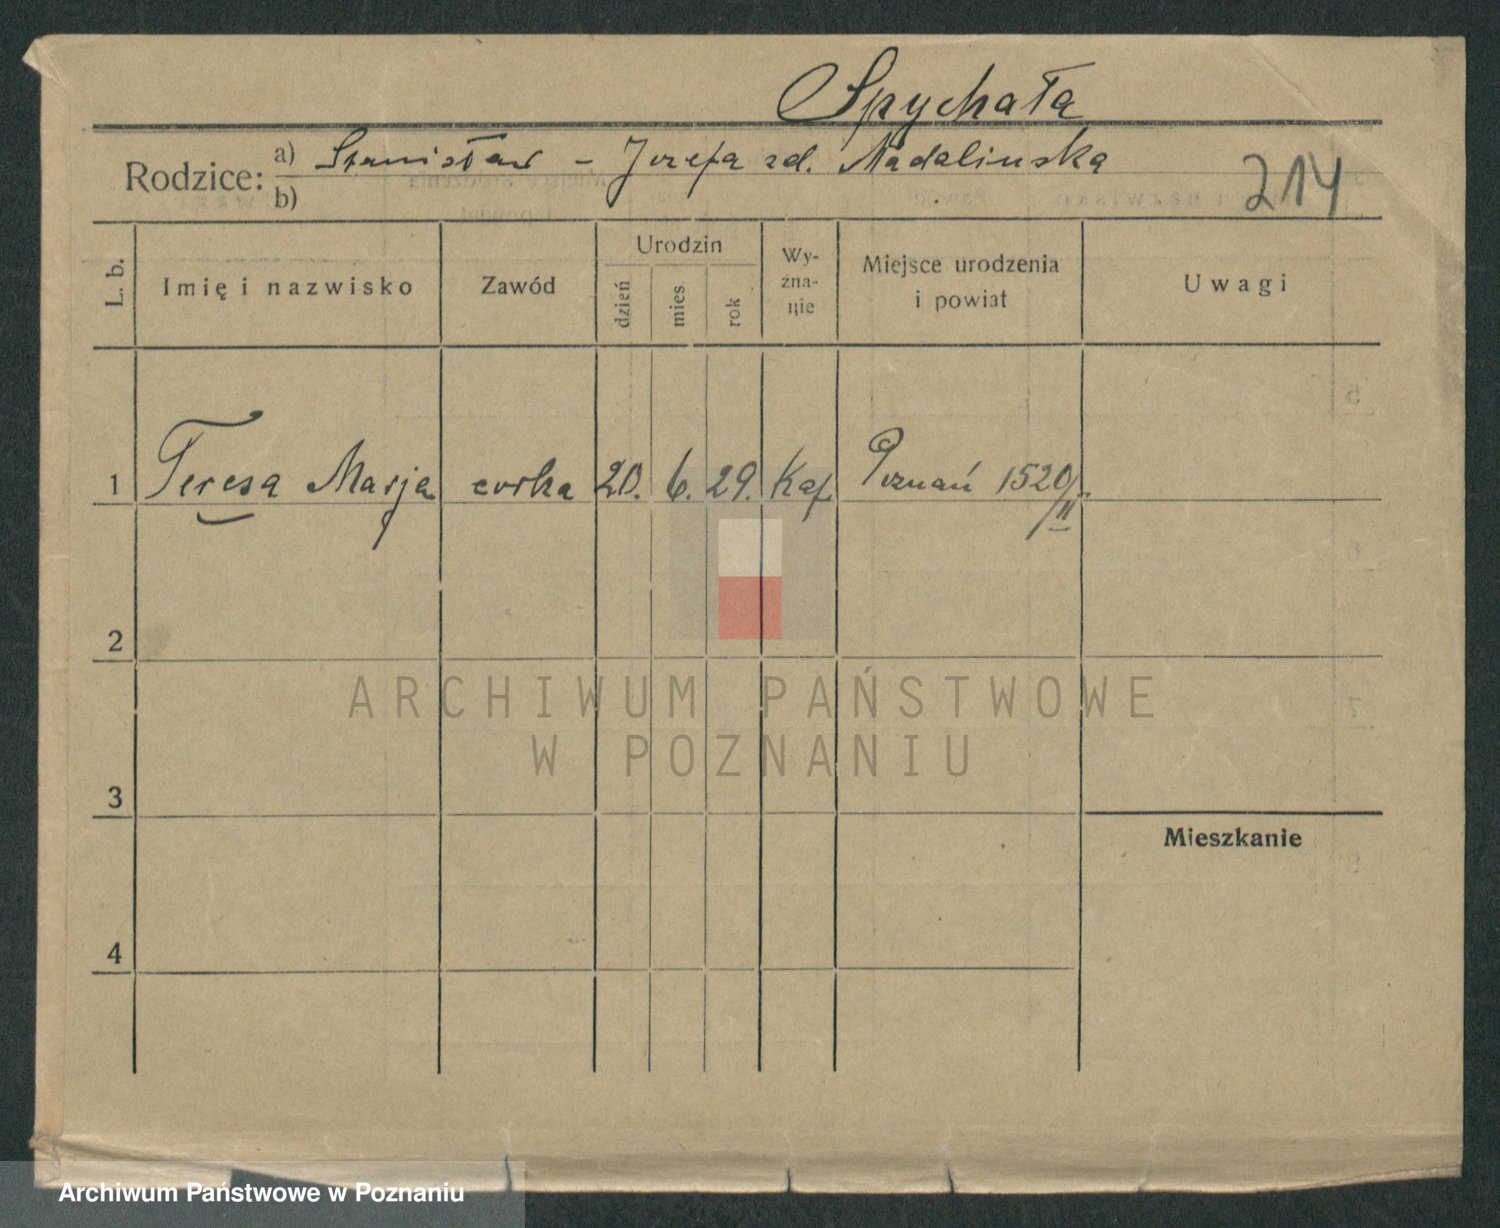 Spychała
Rodzice: a) Stanisław – Józefa zd. Madalińska
b)
214
L. b.
Imię i nazwisko
Zawód
Urodzin
dzień
mies.
rok
Wy-
zna-
nie
Miejsce urodzenia
i powiat
Uwagi
1 Teresa Marja córka 20. 6. 29. Kat. Poznań 1520/
II
2
3
4
Mieszkanie
ARCHIWUM PAŃSTWOWE
W POZNANIU
Archiwum Państwowe w Poznaniu